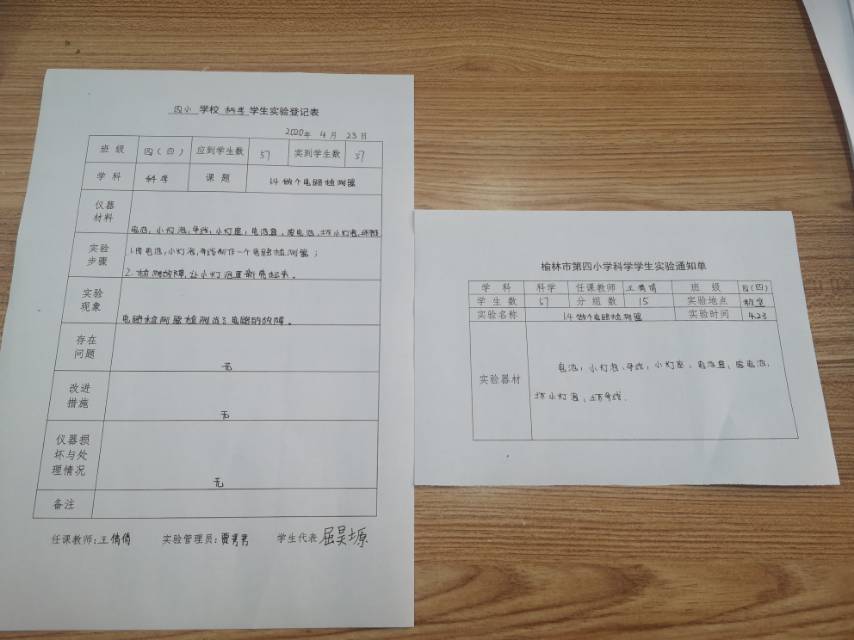 四小 学校 科学 学生实验登记表
2020年 4月 23日
班级 四(四) 应到学生数 57 实到学生数 57
学科 科学 课题 14做个电路检测器
仪器材料 电池,小灯泡,导线,小灯座,电池盒,废电池,坏小灯泡,坏导线
实验步骤 1.用电池,小灯泡,导线制作一个电路检测器;
2.检测故障,让小灯泡重新亮起来。
实验现象 电路检测器检测出了电路的故障。
存在问题 无
改进措施 无
仪器损坏与处理情况 无
备注
任课教师:王倩倩 实验管理员: 学生代表 屈昊塬
榆林市第四小学科学学生实验通知单
学科 科学 任课教师 王倩倩 班级 四(四)
学生数 57 分组数 15 实验地点 教室
实验名称 14做个电路检测器 实验时间 4.23
实验器材 电池,小灯泡,导线,小灯座,电池盒,废电池,
坏小灯泡,坏导线.